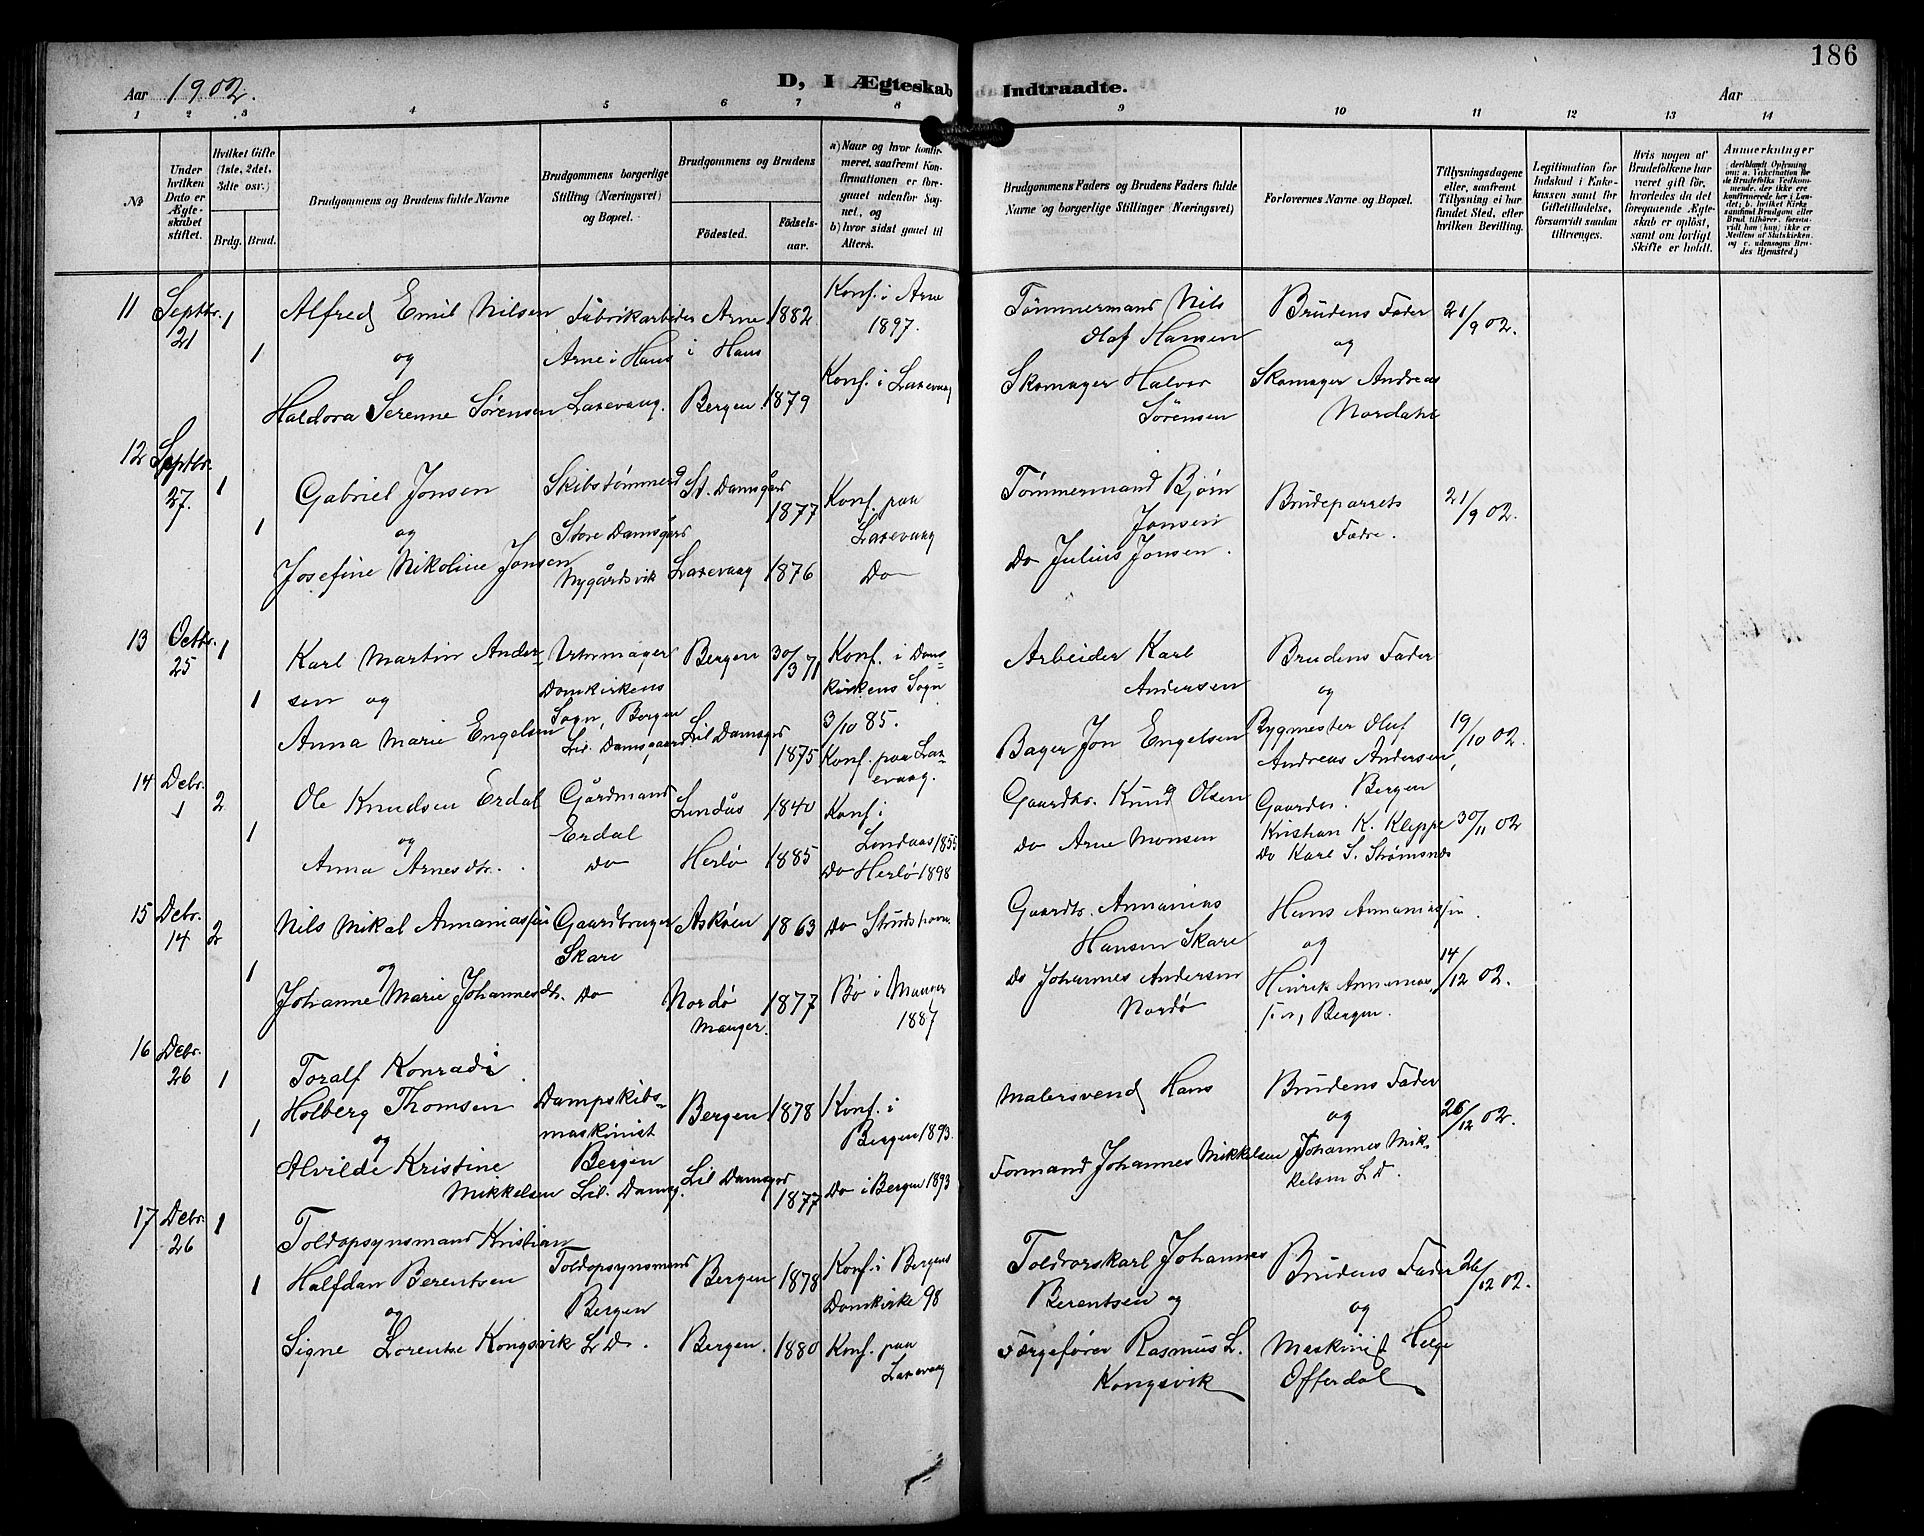 186
Aar 1902.
D, I Ægteskab Indtraadte.
Aar
1 2 3 4 5 6 7 8 9 10 11 12 13 14
No
Under hvilken Dato er Ægteskabet stiftet.
Hvilket Gifte (1ste, 2det, 3die osv.)
Brdg. Brud.
Brudgommens og Brudens fulde Navne
Brudgommens borgerlige Stilling (Næringsvei) og Bopæl.
Brudgommens og Brudens
Fødested.
Fødsels-aar.
a) Naar og hvor konfirmeret, saafremt Konfirmationen er foregaaet udenfor Sognet, og
b) hvor sidst gaaet til Alters.
Brudgommens Faders og Brudens Faders fulde Navne og borgerlige Stillinger (Næringsvei)
Forlovernes Navne og Bopæl.
Tillysningsdagene eller, saafremt Tillysning ei har fundet Sted, efter hvilken Bevilling.
Legitimation for Indskud i Enkekassen samt for Giftetilladelse, forsaavidt saadan tiltrænges.
Hvis nogen af Brudefolkene har været gift før, hvorledes da det foregaaende Ægteskab er opløst, samt om lovligt Skifte er holdt.
Anmerkninger
11 Septbr. 21 1 Alfred Emil Nilsen Fabrikarbeider Arne 1882 Konf. i Arne 1897. Tømmermand Nils Olaf Hansen Brudens Fader 21/9 02.
1 og Arne i Haus i Haus og
Haldora Serenne Sørensen Laxevaag. Bergen. 1879 Konf. i Laxevaag Skomager Halvor Sørensen Skomager Andreas Nordahl
12 Septbr. 27. 1 Gabriel Jonsen Skibstømmermd St. Damsgård 1877 Konf. paa Laxevaag Tømmermand Bjørn Jonsen Brudeparrets Fædre. 21/9 02.
1 og Store Damsgård
Josefine Nikoline Jonsen Nygårdsvik Laxevaag 1876 Do Do Julius Jonsen.
13 Octbr. 25 1 Karl Martin Andersen og Urmager Domkirkens Sogn, Bergen Bergen 30/3 71 Konf. i Domkirkens Sogn 3/10 85. Arbeider Karl Andersen Brudens Fader og
1 Anna Marie Engelsen Lil. Damsgaard Lil Damsgrd 1875 Konf. paa Laxevaag. Bager Jon Engelsen Bygmester Oluf Andreas Andersen, Bergen 19/10 02.
14 Debr. 1 2 Ole Knudsen Erdal Gårdmand Erdal Lindås 1840 Konf. i Lindaas 1855 Gaardbr. Knud Olsen Gaardbr. Kristian K. Kleppe 30/11 02
1 og Anna Arnesdtr. Do Herlø 1885 Do Herlø 1898 Do Arne Monsen Do Karl S. Strømsnes
15 Debr. 14 2 Nils Mikal Annaniassen Gaardbruger Skare Askøen 1863 Do Strudshavn Gaardbr. Annanias Hansen Skare Hans Annaniassen.
1 og og
Johanne Marie Johannesdtr. Do Nordø Manger. 1877 Bø i Manger 1887 Do Johannes Andersen Nordø Hinrik Annaniassen, Bergen. 14/12 02.
16 Debr. 26 1 Toralf Konradi Holberg Thomsen Dampskibsmaskinist Bergen Bergen 1878 Konf. i Bergen 1893. Malersvend Hans Brudens Fader 26/12 02.
1 og og
Alvilde Kristine Mikkelsen Lil. Damsg. Lil Damsgrd 1877 Do i Bergen 1893 Formand Johannes Mikkelsen Johannes Mikkelsen L D.
17 Debr. 26 1 Toldopsynsmand Kristian Halfdan Berentsen Toldopsynsmand Bergen Bergen 1878 Konf. i Bergens Domkirke 98 Toldrorskarl Johannes Berentsen og Brudens Fader 26/12 02.
1 og og
Signe Lorentze Kongsvik L D. Bergen. 1880 Konf. paa Laxevaag Færgefører Rasmus L. Kongsvik Maskinist Helge Offerdal